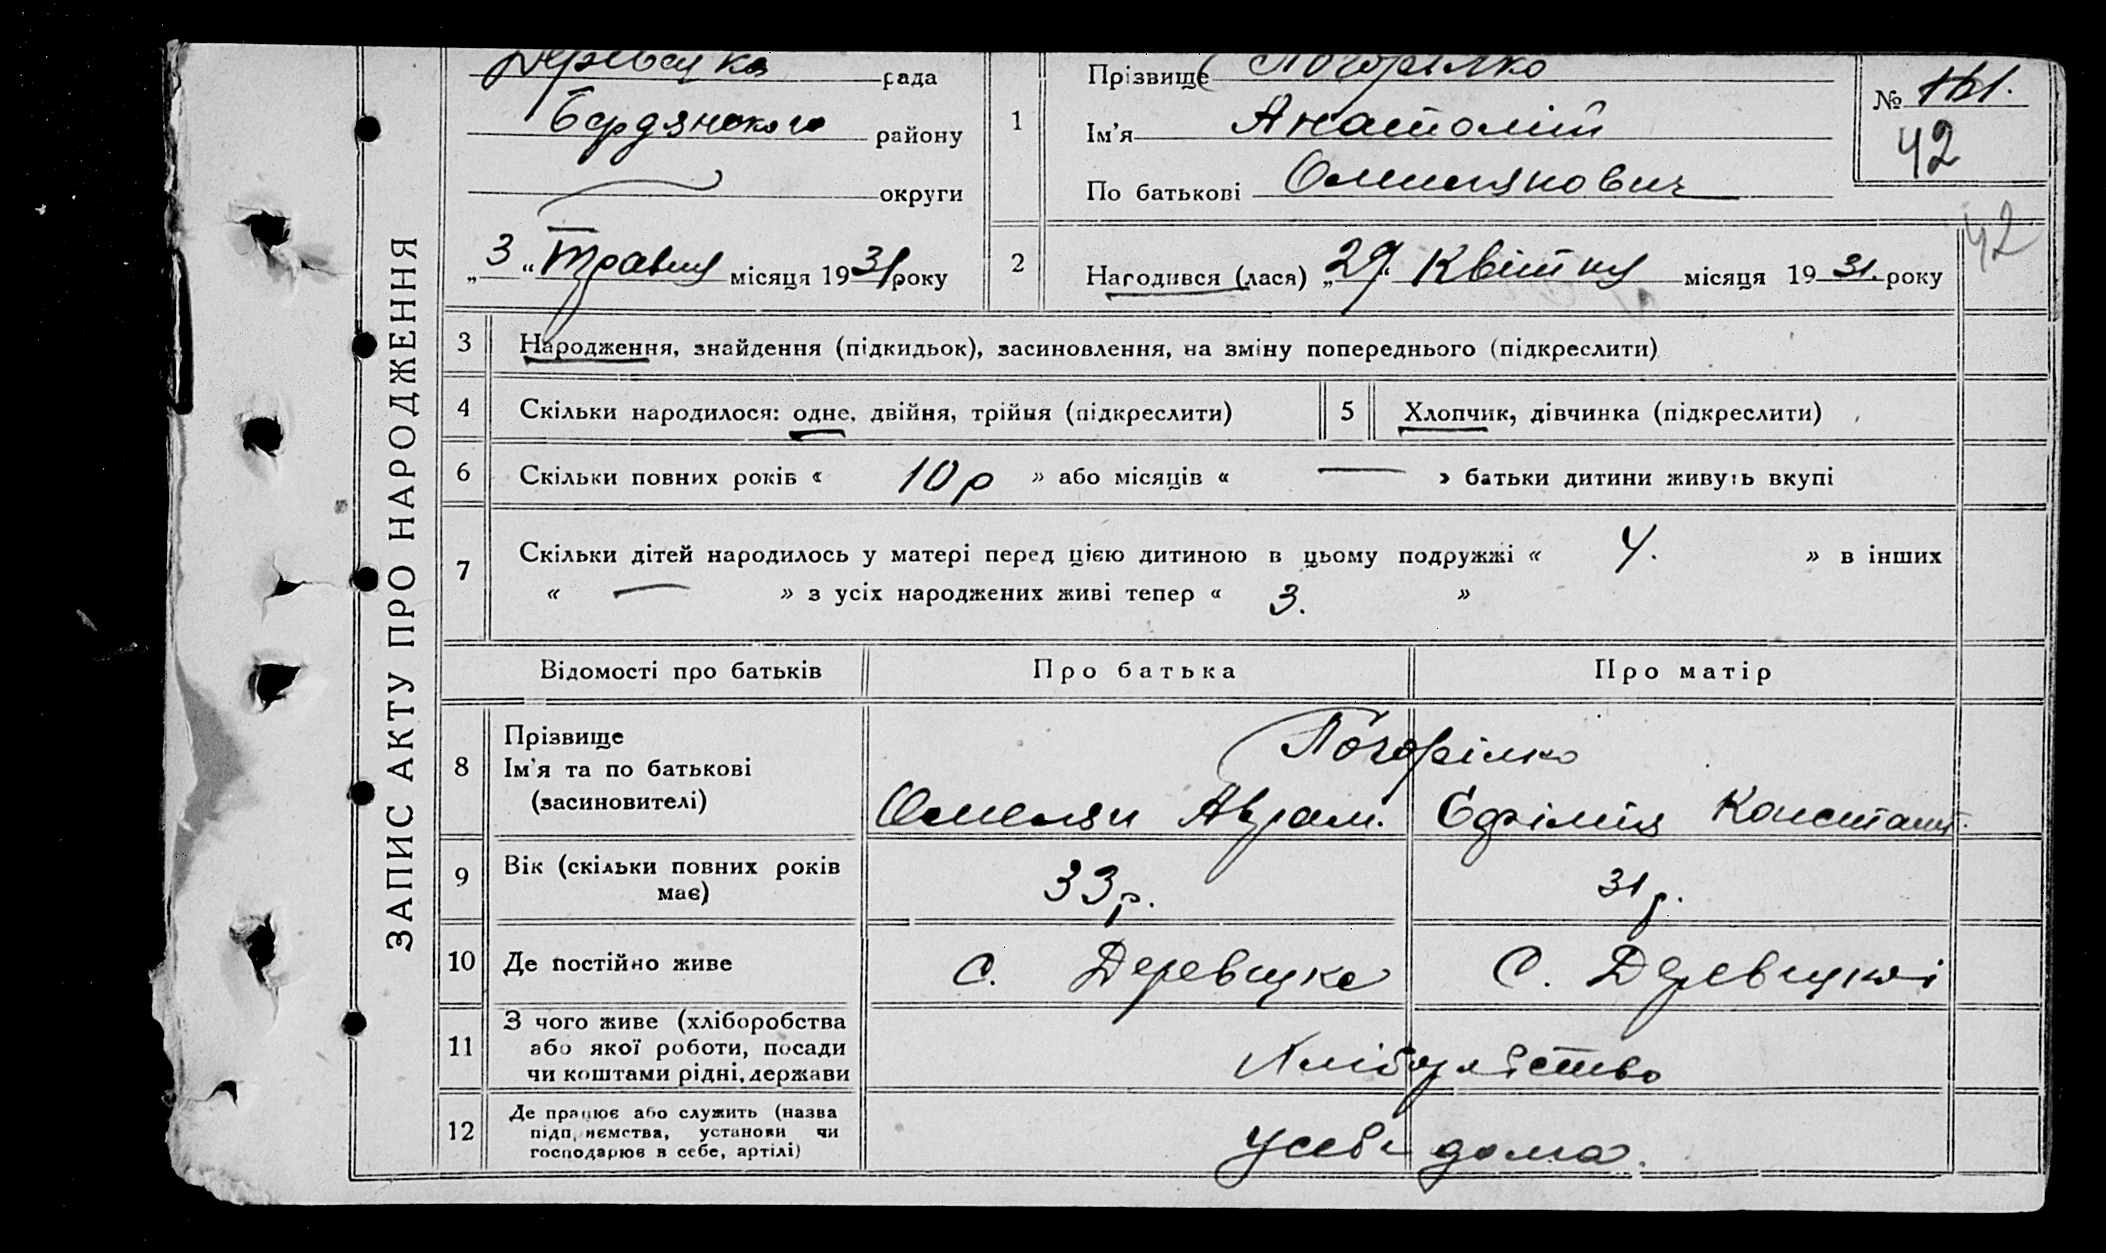 ЗАПИС АКТУ ПРО НАРОДЖЕННЯ
Деревецка рада
Бердянского району
округи
„3“ Травня місяця 1931 року
1
Прізвище Погорілко
Ім'я Анатолій
По батькові Омелянович
№ 161.
42
42
2
Народився (лася) „29“ Квітня місяця 1931. року
3 Народження, знайдення (підкидьок), засиновлення, на зміну попереднього (підкреслити)
4 Скільки народилося: одне, двійня, трійня (підкреслити)
5 Хлопчик, дівчинка (підкреслити)
6 Скільки повних років « 10 р » або місяців « — » батьки дитини живуть вкупі
7 Скільки дітей народилось у матері перед цією дитиною в цьому подружжі « 4. » в інших
« — » з усіх народжених живі тепер « 3. »
Відомості про батьків Про батька Про матір
8 Прізвище
Ім'я та по батькові
(засиновителі)
Погорілко
Омелян Аврам. Єфімія Констант.
9 Вік (скільки повних років
має)
33 р. 31 р.
10 Де постійно живе С. Деревецке С. Деревецкі
11 З чого живе (хліборобства
або якої роботи, посади
чи коштами рідні, держави
Хліборобство
12 Де працює або служить (назва
підприємства, установи чи
господарює в себе, артілі)
У себе дома.